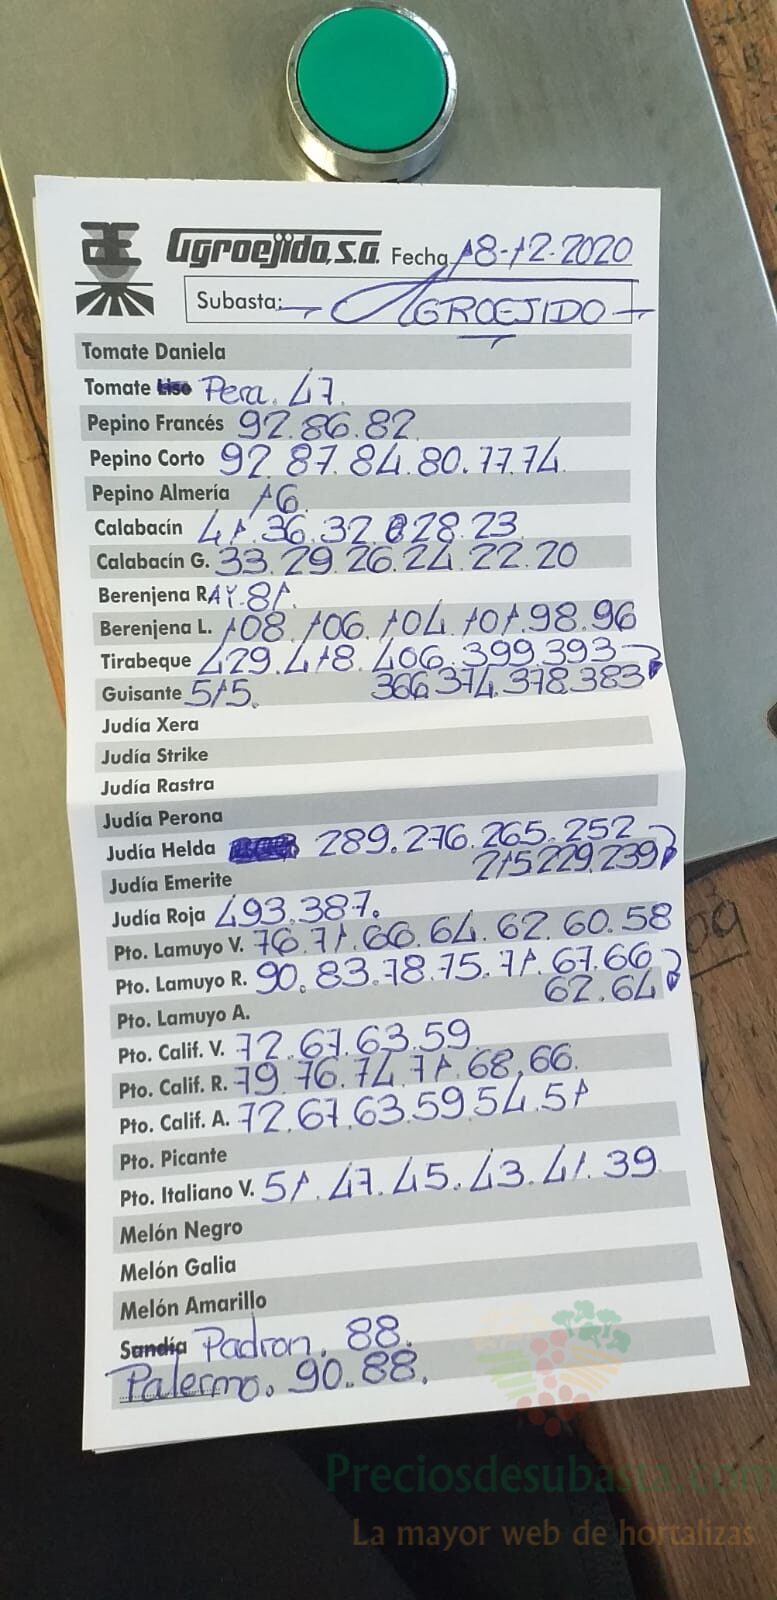 Agroejido, s.a. Fecha 18-12-2020
Subasta: AGROEJIDO
Tomate Daniela
Tomate Liso Pera. 47.
Pepino Francés 92.86.82
Pepino Corto 92.87.84.80.77.74
Pepino Almería 16.
Calabacín 41.36.32.28.23
Calabacín G. 33.29.26.24.22.20
Berenjena RAY.81.
Berenjena L. 108.106.104.101.98.96
Tirabeque 429.418.406.399.393
366.374.378.383
Guisante 515.
Judía Xera
Judía Strike
Judía Rastra
Judía Perona
Judía Helda 289.276.265.252
215.229.239
Judía Emerite
Judía Roja 493.387.
Pto. Lamuyo V. 76.71.66.64.62.60.58
Pto. Lamuyo R. 90.83.78.75.71.67.66
62.64
Pto. Lamuyo A.
Pto. Calif. V. 72.67.63.59
Pto. Calif. R. 79.76.74.71.68.66.
Pto. Calif. A. 72.67.63.59.54.51
Pto. Picante
Pto. Italiano V. 51.47.45.43.41.39
Melón Negro
Melón Galia
Melón Amarillo
Sandía Padron. 88.
Palermo. 90.88.
Preciosdesubasta.com
La mayor web de hortalizas